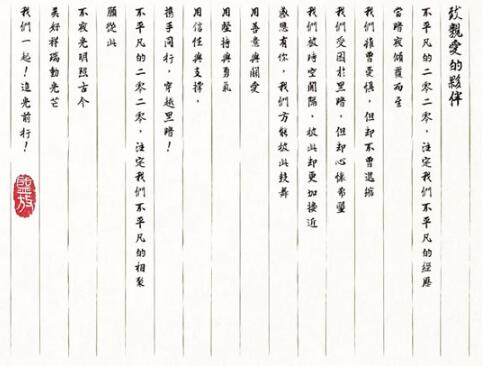 致親愛的夥伴
不平凡的二零二零，注定我們不平凡的經歷
當暗夜傾覆而至
我們雖曾畏懼，但卻不曾退縮
我們受困於黑暗，但卻心係希望
我們被時空間隔，彼此卻更加接近
感恩有你，我們方能彼此鼓舞
用善意與關愛
用堅持與勇氣
用信任與支撐，
攜手同行，穿越黑暗！
不平凡的二零二零，注定我們不平凡的相聚
願從此
不夜光明照古今
美好祥瑞動光芒
我們一起！追光前行！